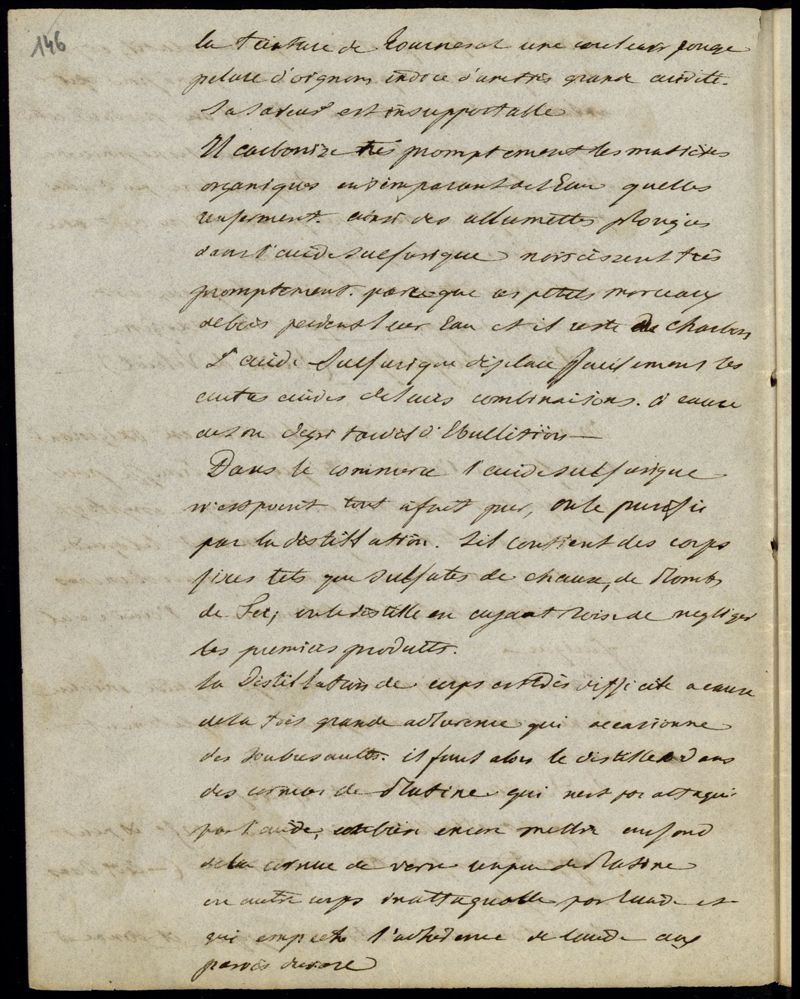 146
la teinture de Tournesol une couleur rouge
pelure d'oignons indice d'une très grande acidité.
Sa saveur est insupportable
Il carbonize très promptement les matières
organiques en s'emparant de l'Eau quelles
renferment. ainsi des allumettes plongées
dans l'acide sulfurique noircissent très
promptement. parceque ces petits morceaux
de bois perdent leur Eau et il reste du charbon
L'acide Sulfurique déplace facilement les
autres acides de leurs combinaisons. à cause
de son degré d'Ebullition —
Dans le commerce l'acide sulfurique
n'est point tout à fait pur, on le purifie
par la distillation. S'il contient des corps
fixes tels que sulfates de chaux, de Plomb,
de Fer, on le distille en ayant soin de negliger
les premiers produits.
la Distillation de corps est très difficile a cause
de la très grande adherence qui occasionne
des soubresauts. il faut alors le distiller dans
des cornues de Platine qui n'est pas attaqué
par l'acide, ou bien encore mettre au fond
de la cornue de verre un peu de Platine
ou autre corps inattaquable par l'acide et
qui empeche l'adhérence de l'acide aux
parois du verre